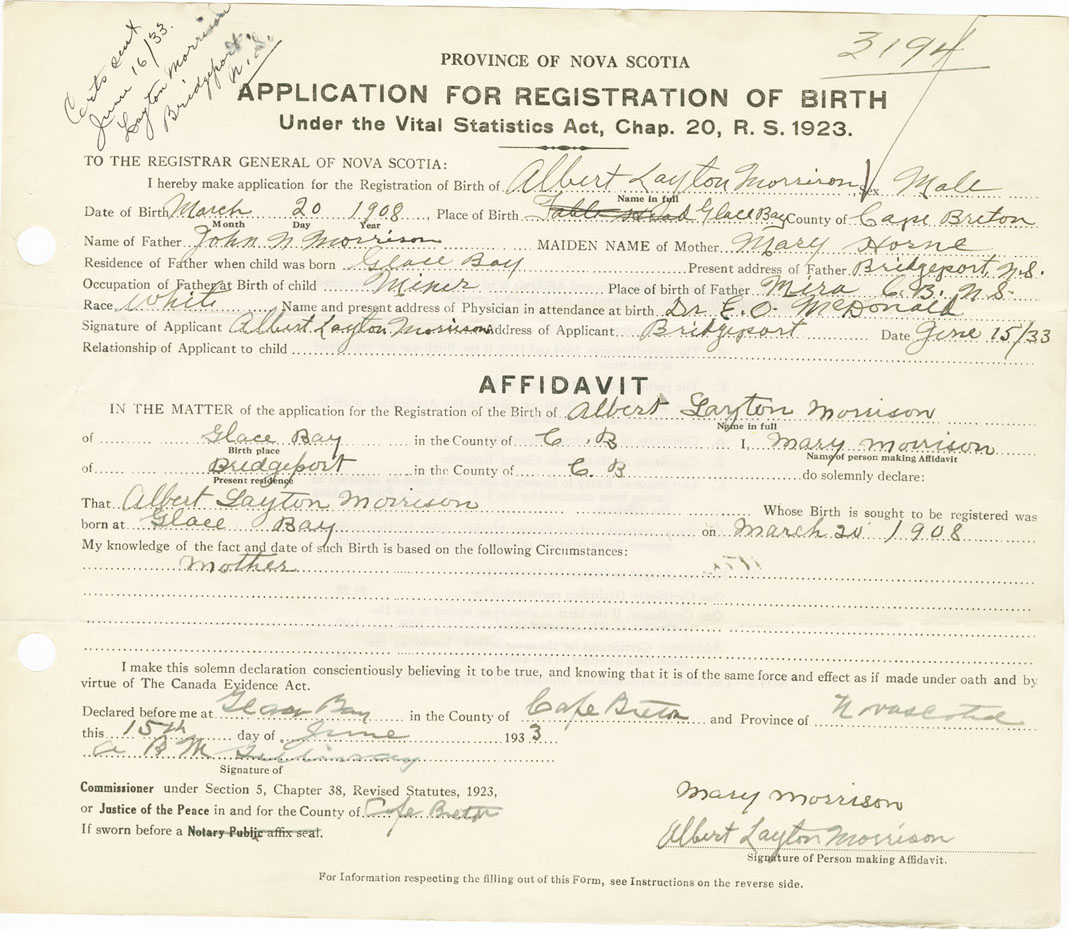 Certs sent
June 16/33.
Layton Morrison
Bridgeport.
N.S.
3194
PROVINCE OF NOVA SCOTIA
APPLICATION FOR REGISTRATION OF BIRTH
Under the Vital Statistics Act, Chap. 20, R. S. 1923.
TO THE REGISTRAR GENERAL OF NOVA SCOTIA:
I hereby make application for the Registration of Birth of Albert Layton Morrison, Sex Male
Name in full
Date of Birth March 20 1908, Place of Birth Glace Bay County of Cape Breton
Month Day Year
Name of Father John N Morrison MAIDEN NAME of Mother Mary Horne
Residence of Father when child was born Glace Bay Present address of Father Bridgeport N.S.
Occupation of Father at Birth of child Miner Place of birth of Father Mira C.B. N.S.
Race White Name and present address of Physician in attendance at birth Dr. E. O. McDonald
Signature of Applicant Albert Layton Morrison Address of Applicant Bridgeport Date June 15/33
Relationship of Applicant to child
AFFIDAVIT
IN THE MATTER of the application for the Registration of the Birth of Albert Layton Morrison
Name in full
of Glace Bay in the County of C.B I, Mary Morrison
Birth place Name of person making Affidavit
of Bridgeport in the County of C B do solemnly declare:
Present residence
That Albert Layton Morrison Whose Birth is sought to be registered was
born at Glace Bay on March 20 1908
My knowledge of the fact and date of such Birth is based on the following Circumstances:
Mother
I make this solemn declaration conscientiously believing it to be true, and knowing that it is of the same force and effect as if made under oath and by
virtue of The Canada Evidence Act.
Declared before me at Glace Bay in the County of Cape Breton and Province of Novascotia
this 15th day of June 1933
A B M
Signature of
Commissioner under Section 5, Chapter 38, Revised Statutes, 1923,
or Justice of the Peace in and for the County of Cape Breton
If sworn before a Notary Public affix seal.
Mary Morrison
Albert Layton Morrison
Signature of Person making Affidavit.
For Information respecting the filling out of this Form, see Instructions on the reverse side.